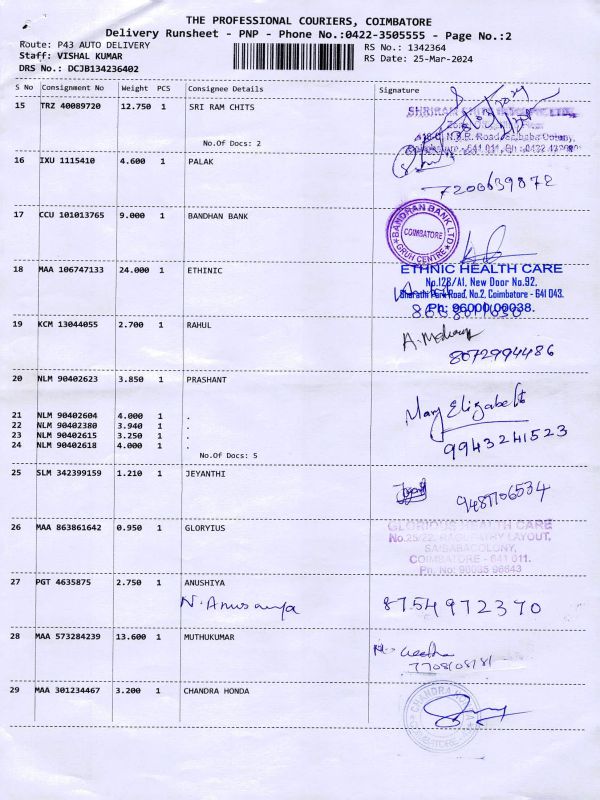 THE PROFESSIONAL COURIERS, COIMBATORE
Delivery Runsheet - PNP - Phone No.:0422-3505555 - Page No.:2
Route: P43 AUTO DELIVERY
Staff: VISHAL KUMAR
DRS No.: DCJB134236402
RS No.: 1342364
RS Date: 25-Mar-2024
S No Consignment No Weight PCS Consignee Details Signature
15 TRZ 40089720 12.750 1 SRI RAM CHITS
No.Of Docs: 2
16 IXU 1115410 4.600 1 PALAK
7200639872
17 CCU 101013765 9.000 1 BANDHAN BANK
BANDHAN BANK LTD
COIMBATORE
GRUH CENTRE
18 MAA 106747133 24.000 1 ETHINIC
ETHNIC HEALTH CARE
No.128/A1, New Door No.92,
Bharathi Park Road, No.2, Coimbatore - 641 043.
Ph: 96000 00038.
19 KCM 13044055 2.700 1 RAHUL
8072994486
20 NLM 90402623 3.850 1 PRASHANT
21 NLM 90402604 4.000 1 .
22 NLM 90402380 3.940 1 .
23 NLM 90402615 3.250 1 .
24 NLM 90402618 4.000 1 .
No.Of Docs: 5
Mary Elizabeth
9943241523
25 SLM 342399159 1.210 1 JEYANTHI
9487106534
26 MAA 863861642 0.950 1 GLORYIUS
GLORIOUS HEALTH CARE
No.25/22, RAGUPATHY LAYOUT,
SAIBABACOLONY,
COIMBATORE - 641 011.
27 PGT 4635875 2.750 1 ANUSHIYA
N. Anusanya 8754972370
28 MAA 573284239 13.600 1 MUTHUKUMAR
29 MAA 301234467 3.200 1 CHANDRA HONDA